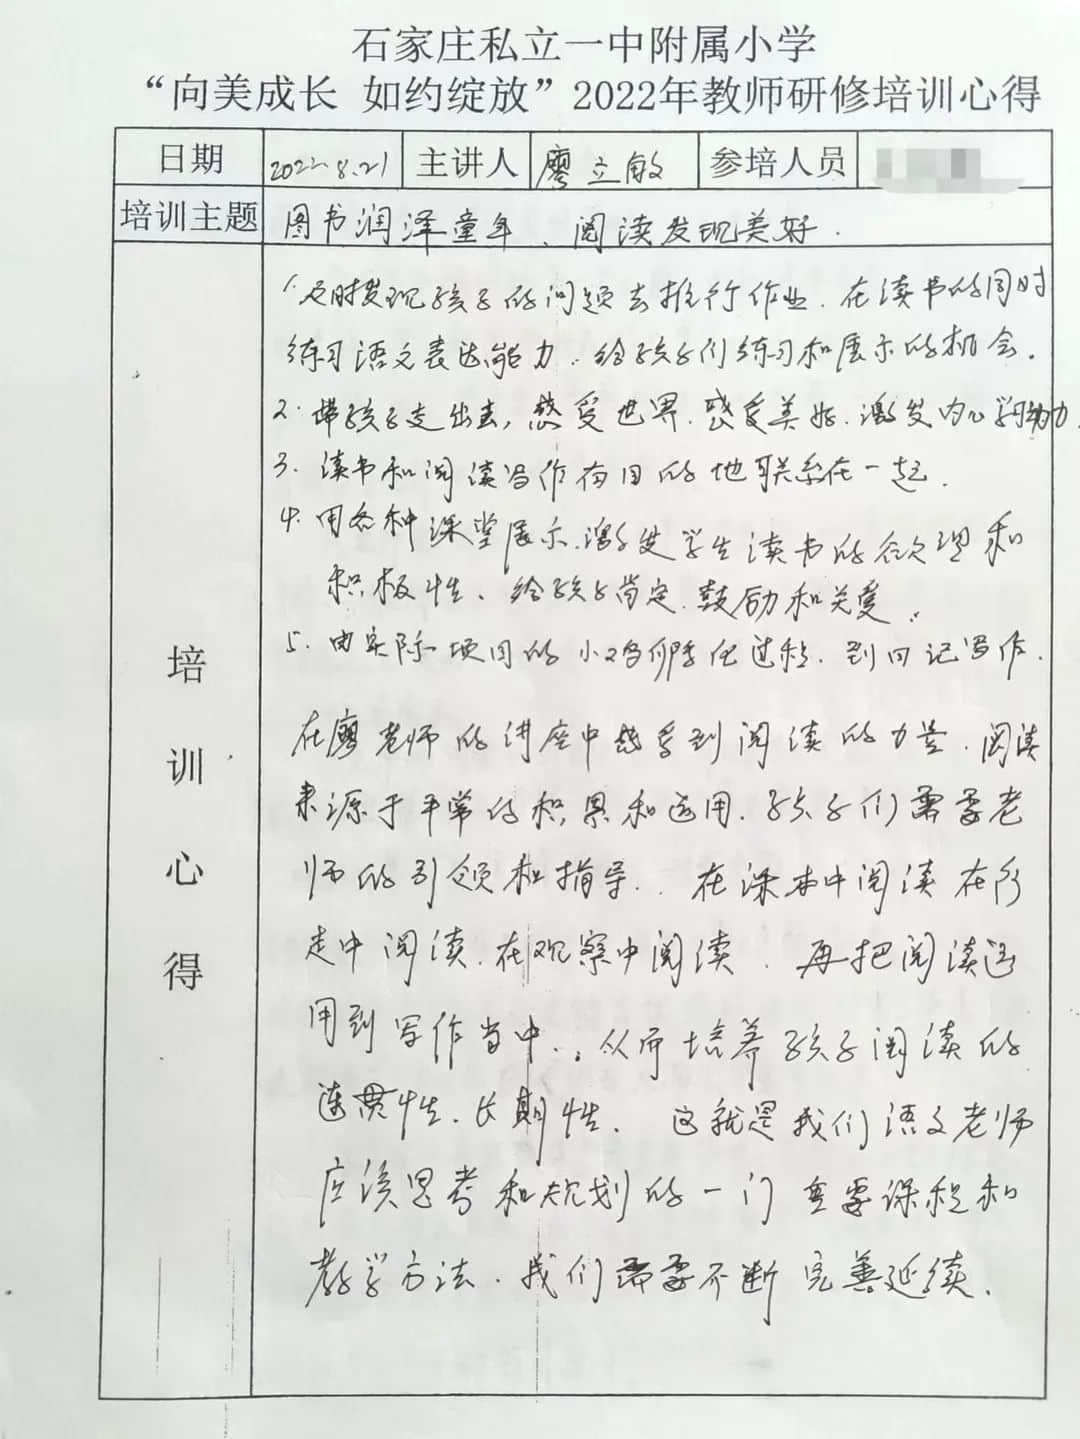 石家庄私立一中附属小学
“向美成长 如约绽放”2022年教师研修培训心得
日期 2022.8.21 主讲人 廖立敏 参培人员
培训主题 图书润泽童年、阅读发现美好.
培训心得
1.及时发现孩子的问题去推行作业.在读书的同时
练习语文表达能力.给孩子们练习和展示的机会.
2.带孩子走出去,感受世界.感受美好.激发内心学习动力.
3.读书和阅读写作有目的地联系在一起.
4.用各种课堂展示.激发学生读书的欲望和
积极性、给孩子肯定.鼓励和关爱.
5.由实际项目的小鸡孵化过程.到日记写作.
在廖老师的讲座中感受到阅读的力量.阅读
来源于平常的积累和运用.孩子们需要老
师的引领和指导..在课本中阅读在行
走中阅读.在观察中阅读.再把阅读运
用到写作当中.,从而培养孩子阅读的
连贯性.长期性.这就是我们语文老师
应该思考和规划的一门重要课程和
教学方法.我们需要不断完善延续.